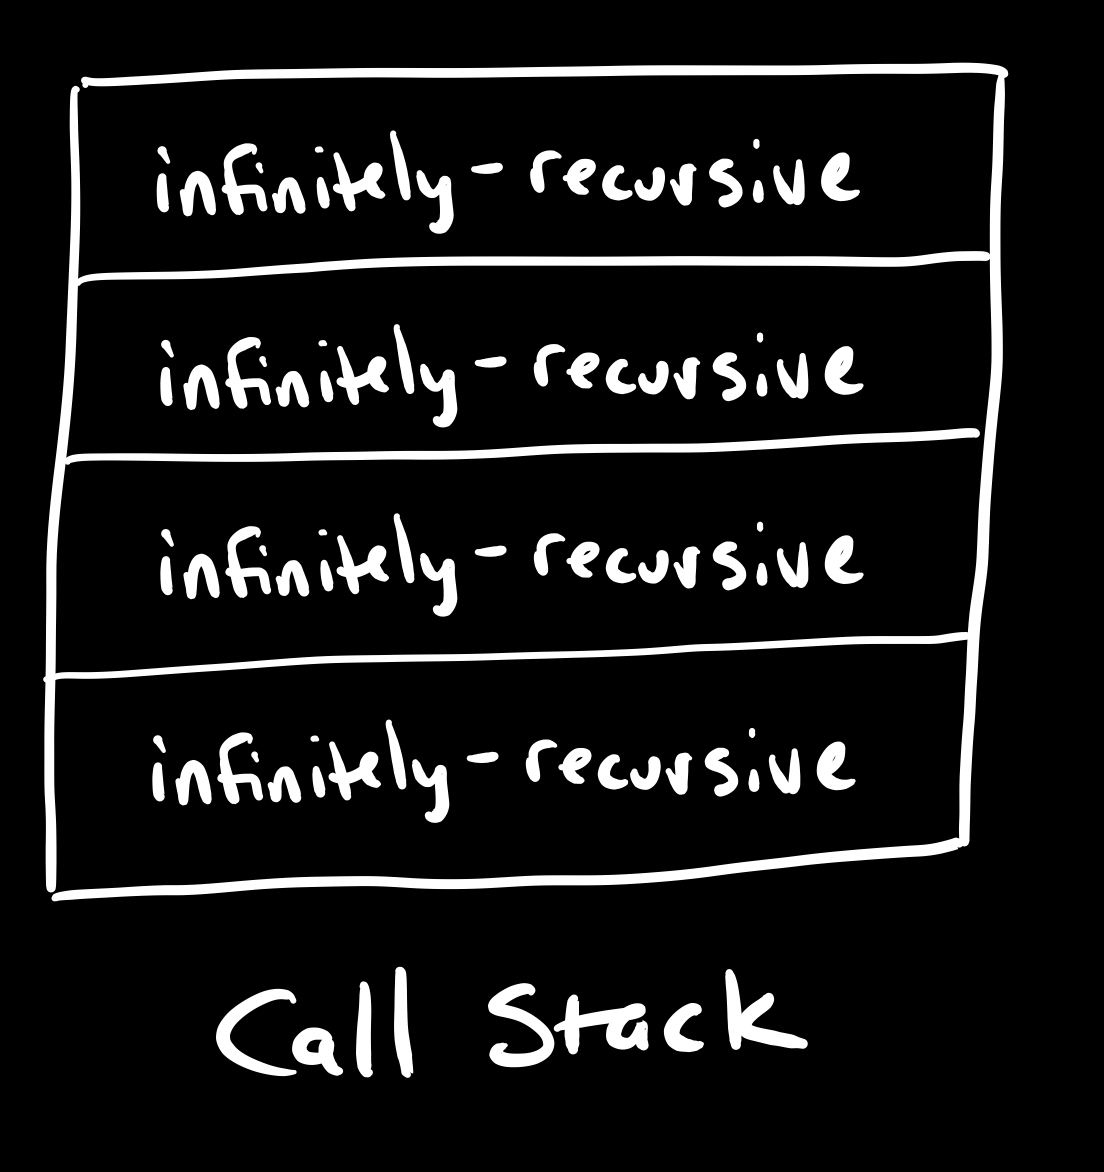 infinitely-recursive
infinitely-recursive
infinitely-recursive
infinitely-recursive
Call Stack